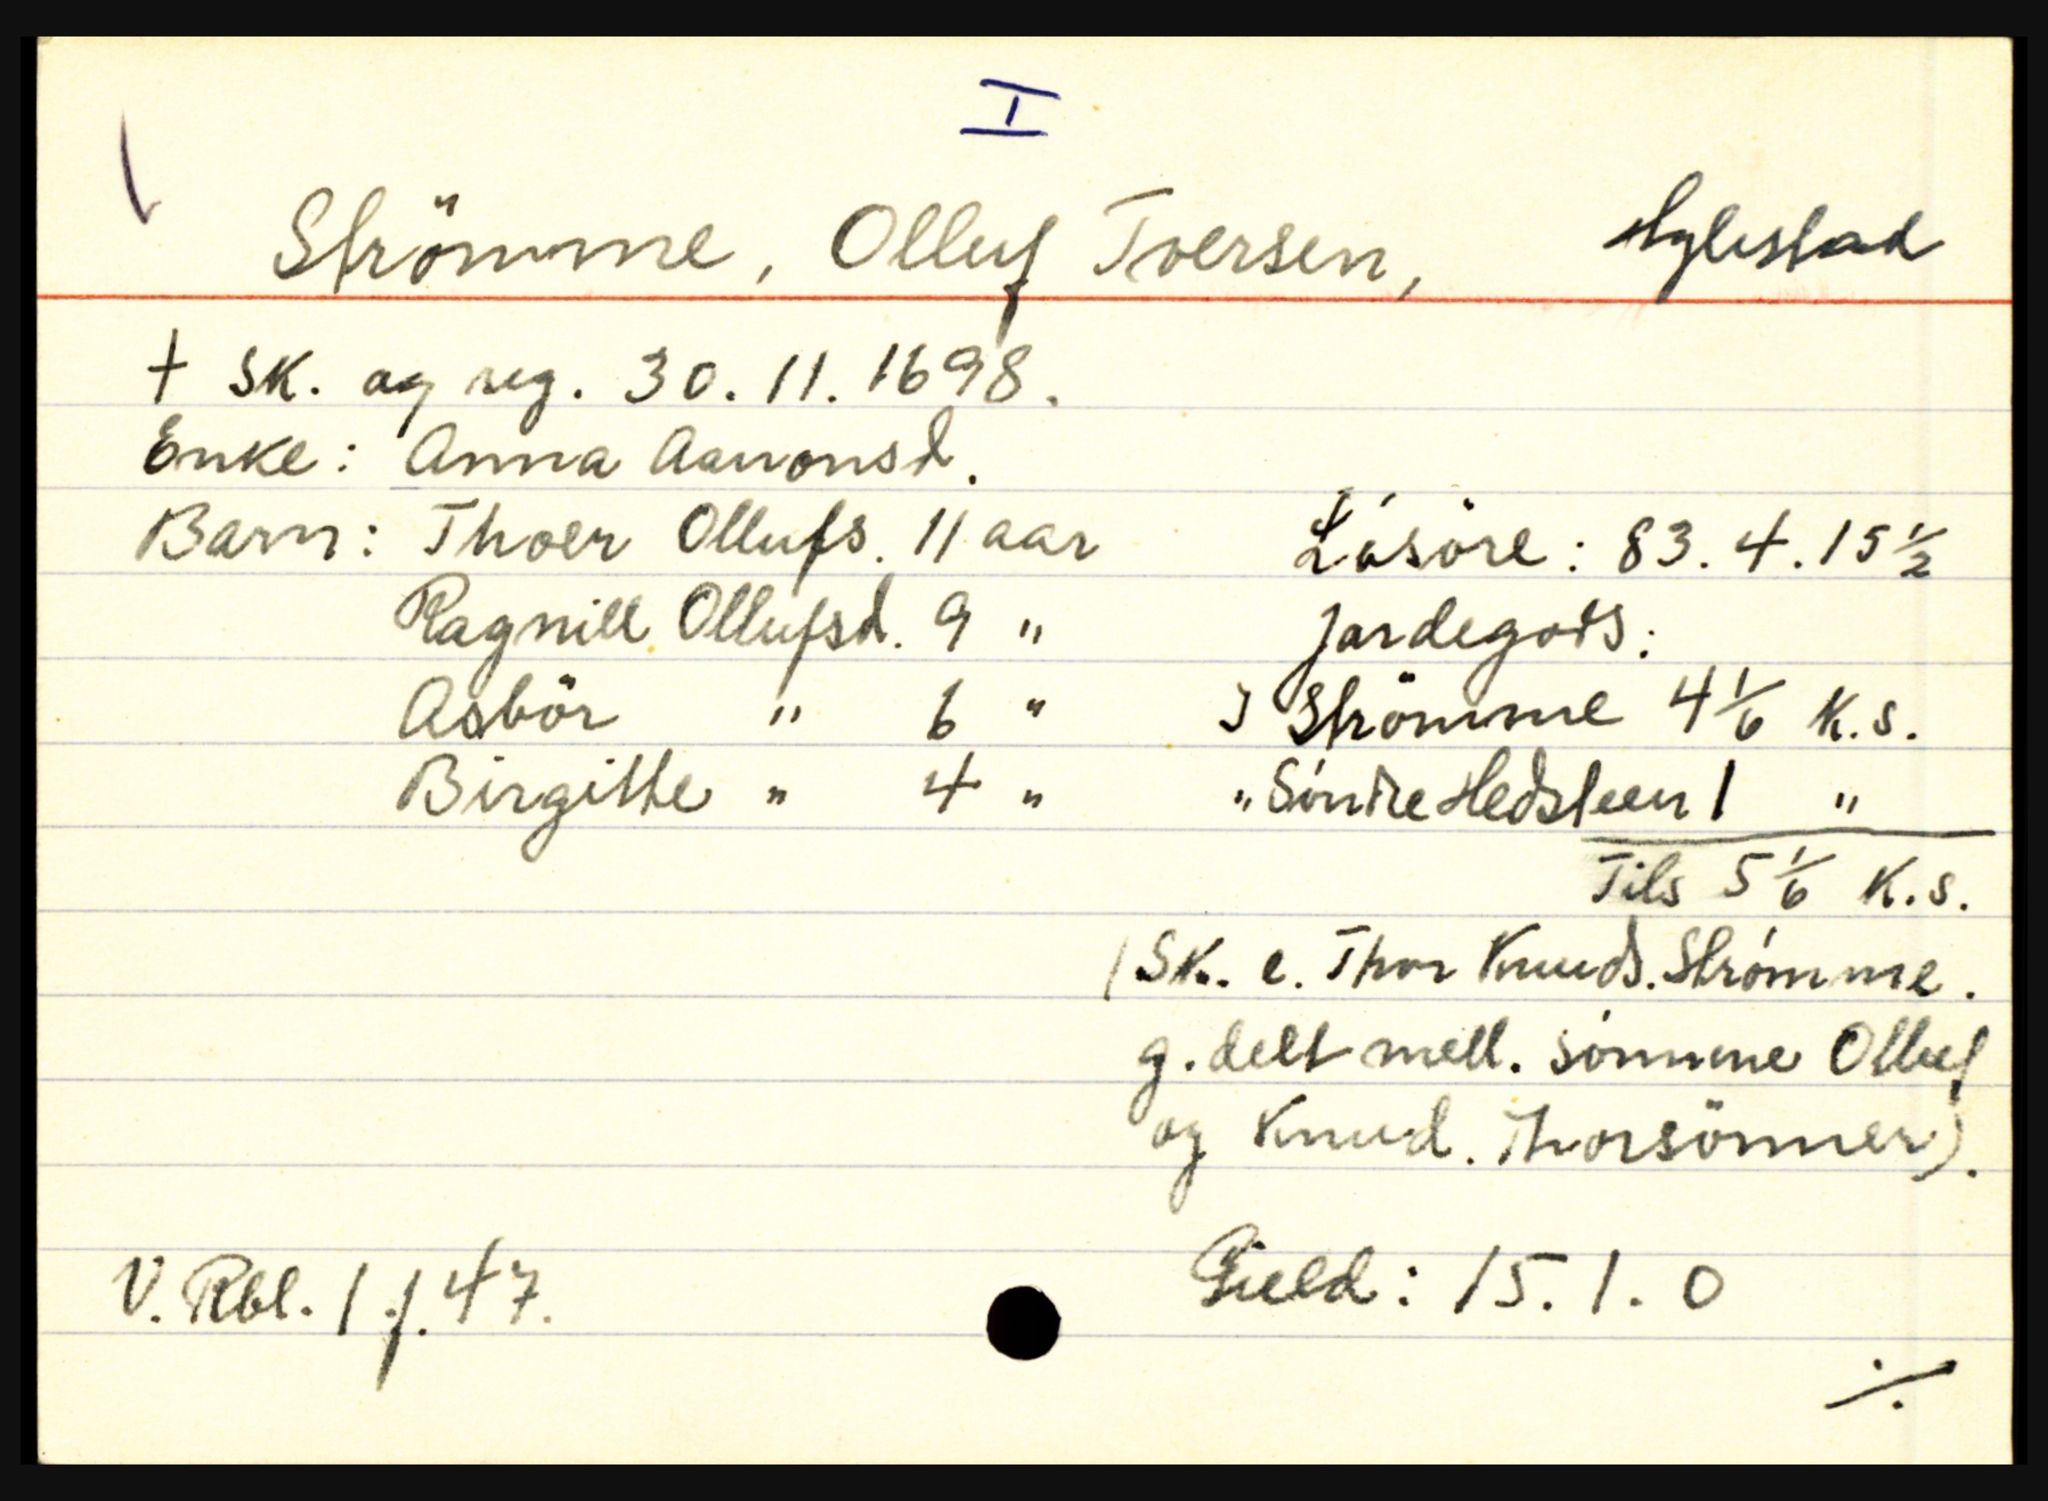 I
Strömme, Olluf Tversen, Hylestad
† Sk. og reg. 30.11.1698.
Enke: Anna Aanonsd.
Barn: Thoer Ollufs. 11 aar Lösöre: 83.4.15 1/2
Ragnill Ollufsd. 9 " Jordegods:
Asbör " 6 " I Strömme 4 1/6 K.s.
Birgitte " 4 " " Söndre Hedsteen 1 "
Tils 5 1/6 K.s.
(Sk. e. Thor Knuds. Strömme.
g. delt mell. sönnene Olluf
og Knud. Thorsönner).
V. Rbl. 1 f. 47. Gield: 15.1.0
./.